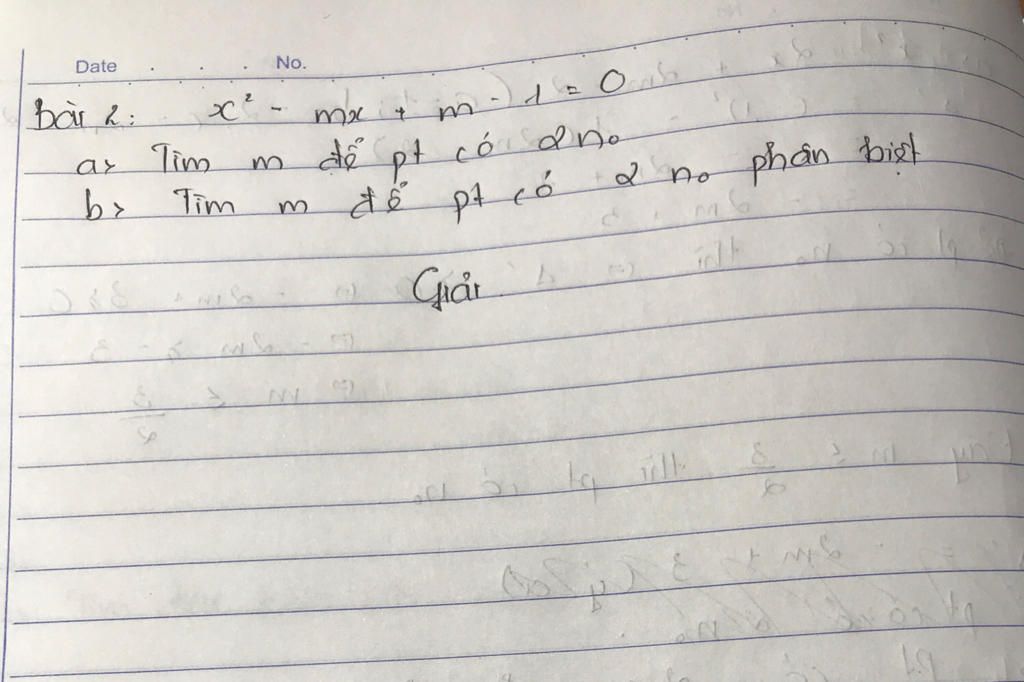 Date . . . No.
Bài 2: x² - mx + m - 1 = 0
a> Tìm m để pt có 2 no
b> Tìm m để pt có 2 no phân biệt
Giải